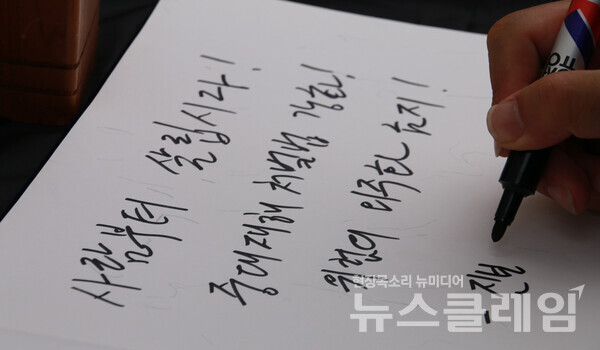 사람부터 살립시다!
중대재해 처벌법 강화!
위험의 외주화 금지!
현장목소리 뉴미디어
뉴스클레임